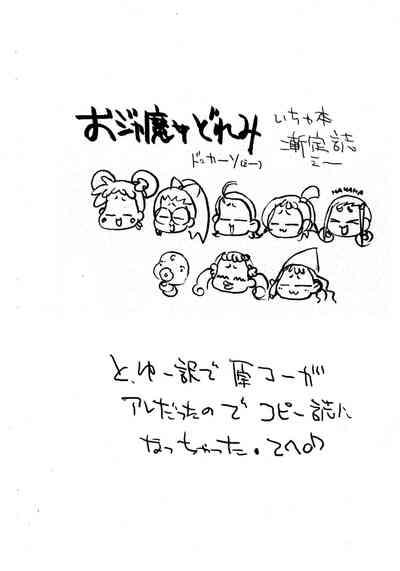 おジャ魔女どれみ
ドッカーソ(ミー)
いちゃ本
漸定誌
ミー
HANAHA
と、ゆー訳で 原コーが
アレだったので コピー誌に
なっちゃった。てへ♪